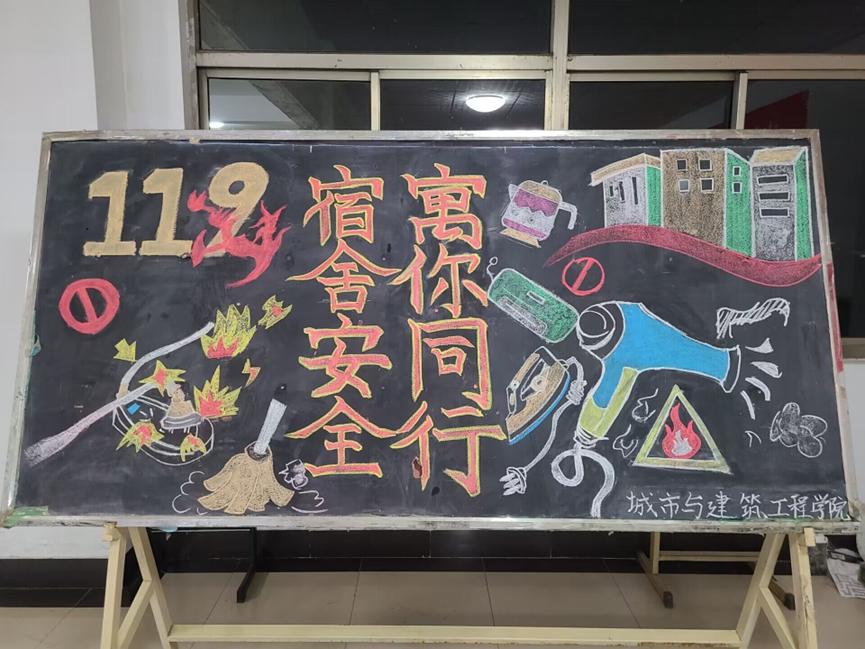 119
宿舍安全
寓你同行
城市与建筑工程学院